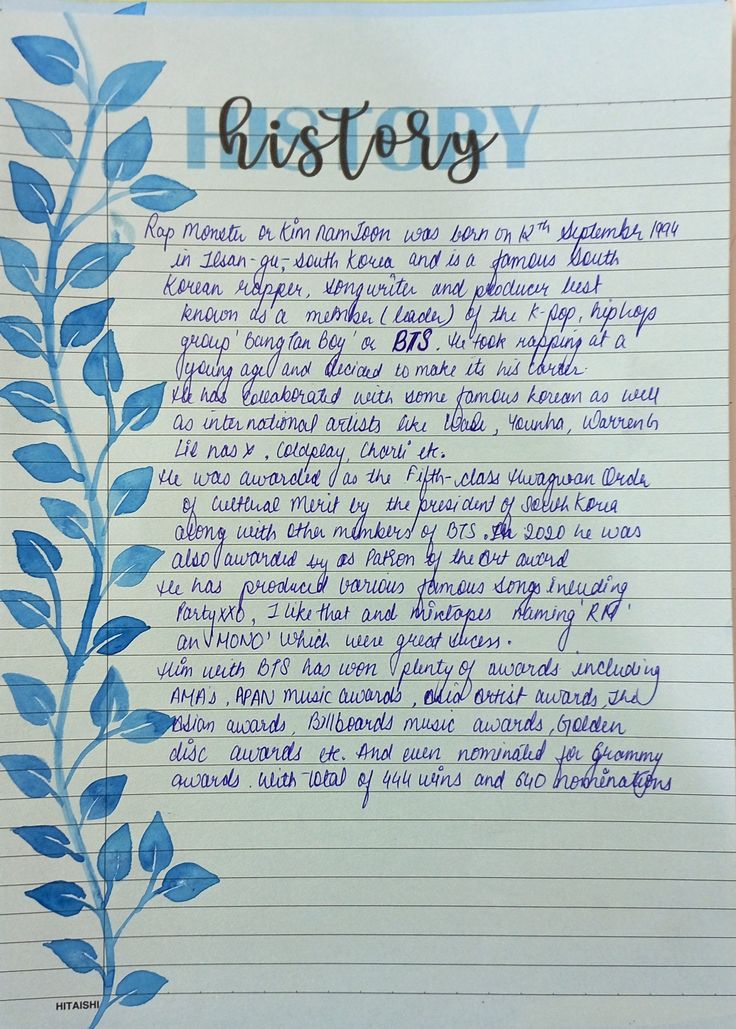 HISTORY
history
Rap Monster or Kim Nam Joon was born on 12th September 1994
in Ilsan-gu, South Korea and is a famous South
Korean rapper, songwriter and producer best
known as a member (leader) of the K-pop, hiphops
group 'Bang Tan Boy' or BTS. He took rapping at a
young age and decided to make its his career.
He has collaborated with some famous Korean as well
as international artists like Wale, Younha, Warren G
Lil nas x, Coldplay, Charli etc.
He was awarded as the Fifth-class Hwagwan Order
of Cultural Merit by the president of South Korea
along with other members of BTS. In 2020 he was
also awarded by as Patron of the art award
He has produced various famous songs including
Party XXO, I like that and mixtapes naming 'RM'
an 'MONO' which were great
Him with BTS has won plenty of awards including
AMA's, APAN music awards, asia artist awards, The
Asian awards, Billboards music awards, Golden
disc awards etc. And even nominated for Grammy
awards. With total of 444 wins and 640 nominations
HITAISHI